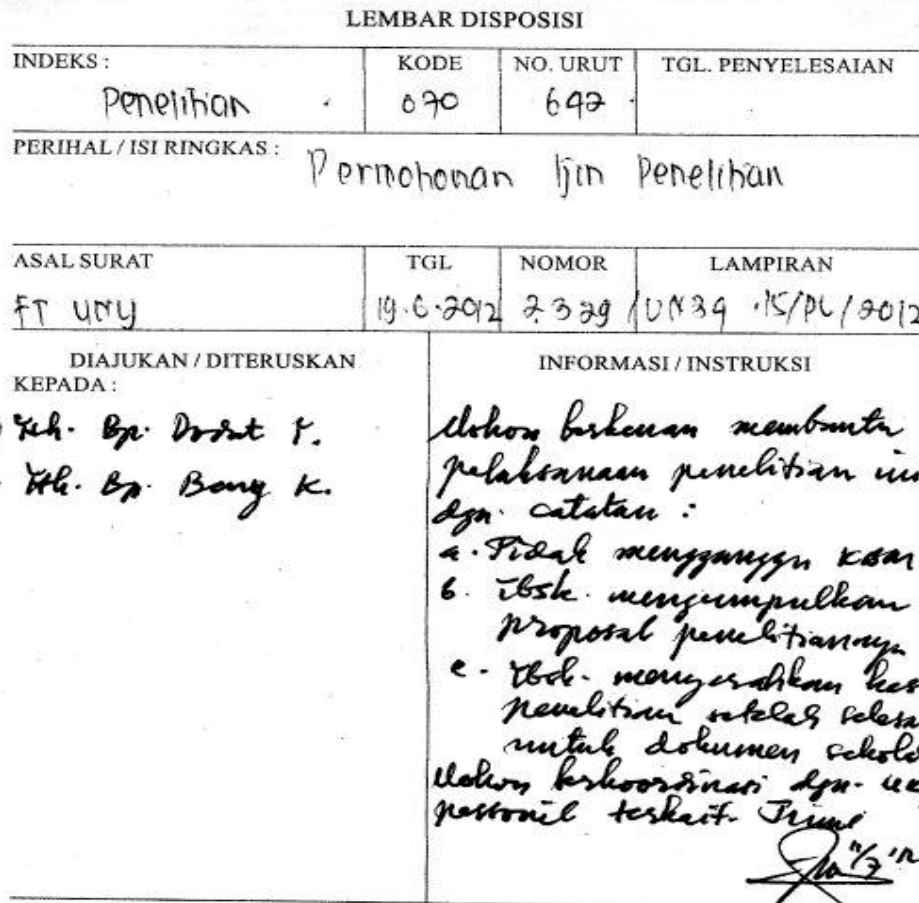 LEMBAR DISPOSISI
INDEKS : KODE NO. URUT TGL. PENYELESAIAN
Penelitian 070 642
PERIHAL / ISI RINGKAS : Permohonan Ijin Penelitian
ASAL SURAT TGL NOMOR LAMPIRAN
FT UNY 19.6.2012 2329/UN34.15/PL/2012
DIAJUKAN / DITERUSKAN
KEPADA :
Yth. Bp.
Yth. Bp. K.
INFORMASI / INSTRUKSI
Mohon berkenan membantu
pelaksanaan penelitian
dgn. catatan :
a. Tidak mengganggu KBM
b. Ybsk. mengumpulkan
proposal penelitiannya
c. Ybsk. menyerahkan
penelitian setelah
untuk dokumen
Mohon berkoordinasi dgn.
personil terkait.